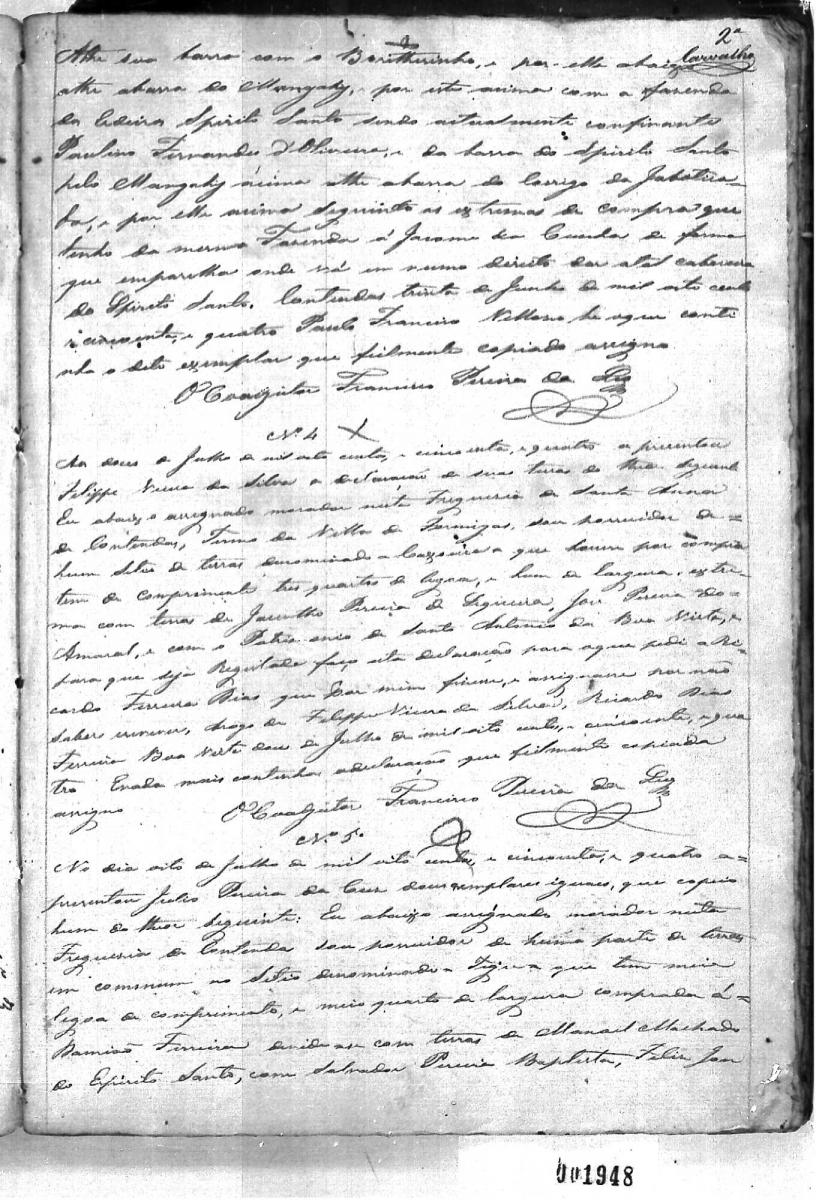 2ª
Carvalho
Athe sua barra com oBoritherinho, e por elle abaixo
athe abarra do Mangahy, e por este acima com a fazenda
da Ledeira Spirito Santo sendo actualmente confinante
Paulino Fernandes d'Oliveira, e da barra do Spirito Santo
pelo Mangahy acima athe abarra do Corrigo da Jabotica-
ba, e por elle acima seguindo as extremas de compra que
tenho da mesma Fazenda á Jacome da Cunha de forma
que emparelha onde vá em rumo direito dar atal cabeceira
do Spirito Santo. Contendas trinta de Junho de mil oito cento
e cincoenta, e quatro Paulo Francisco Velloso he oque conti
nha o dito exemplar que fielmente copiado assigno
O Coadjutor Francisco Pereira da Luz
Nº 4 X
Aos dous de Julho de mil oito centos, e cincoenta, e quatro a presentou
Felippe Vieira da Silva a declaração de suas terras do theor seguinte
Eu abaixo assignado morador nesta Freguesia de Santa Anna
de Contendas, Termo da Villa de Formigas, sou possuidor de=
hum Sitio de terras denominado a que houve por compra
tem de comprimento tres quartos de legoa, e hum de largura, extre-
ma com terras de Jacintho Pereira de Siqueira, José Pereira do=
Amaral, e com o Patrimonio de Santo Antonio da Boa Vista, e
para que seja Registada faço esta declaração para aque pedi a Ri-
cardo Ferreira Dias que por mim fizesse, e assignasse por não
saber escrever, arogo de Felippe Vieira da Silva, Ricardo Dias
Ferreira Boa Vista dous de Julho de mil oito centos, e cincoenta, e qua
tro Enada mais continha adeclaração que fielmente copiada
assigno O Coadjutor Francisco Pereira da Luz
Nº 5º
No dia oito de Julho de mil oito centos, e cincoenta, e quatro a=
presentou Julio Pereira da Cruz dous exemplares iguaes, que copeio
hum do theor seguinte: Eu abaixo assignado morador nesta
Freguesia de Contenda sou possuidor de huma parte de terras
em commum no Sitio denominado a que tem meia
legoa de comprimento, e meio quarto de largura comprada á=
Damião Ferreira devide-se com terras de Manoel Machado
do Espirito Santo, com Salvador Pereira Baptista, Felix José
001948